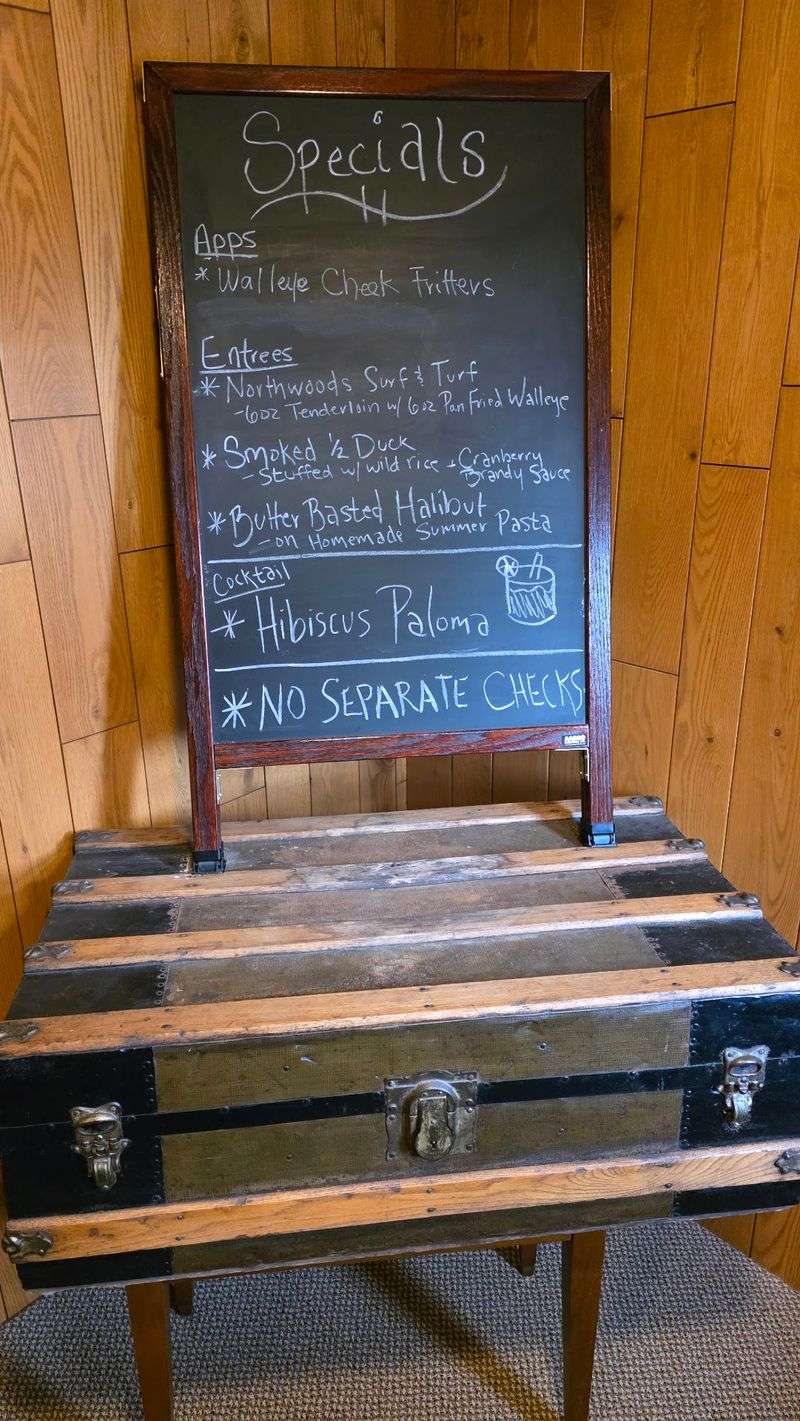 Specials
Apps
* Walleye Cheek Fritters
Entrees
* Northwoods Surf & Turf
- 6oz Tenderloin w/ 6oz Pan Fried Walleye
* Smoked 1/2 Duck
- Stuffed w/ wild rice + Cranberry
Brandy Sauce
* Butter Basted Halibut
- on Homemade Summer Pasta
Cocktail
* Hibiscus Paloma
* NO SEPARATE CHECKS